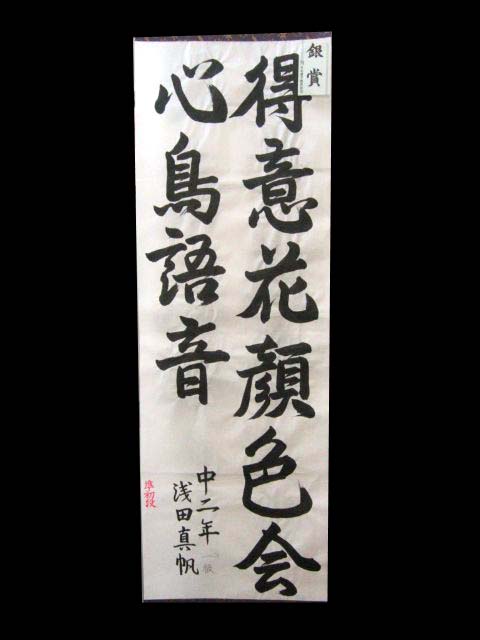 銀賞
得意花顔色会
心鳥語音
中二年
浅田真帆
準初段